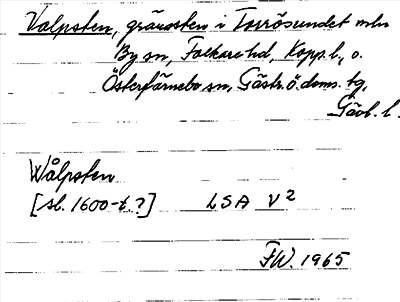 Valpsten, gränssten i Torrösundet mln
By sn, Folkare hd, Kopp. l., o.
Österfärnebo sn, Gästr. ö. doms. tg,
Gävl. l.
Wålpsten
[sl. 1600-t.?] LSA V²
FW. 1965